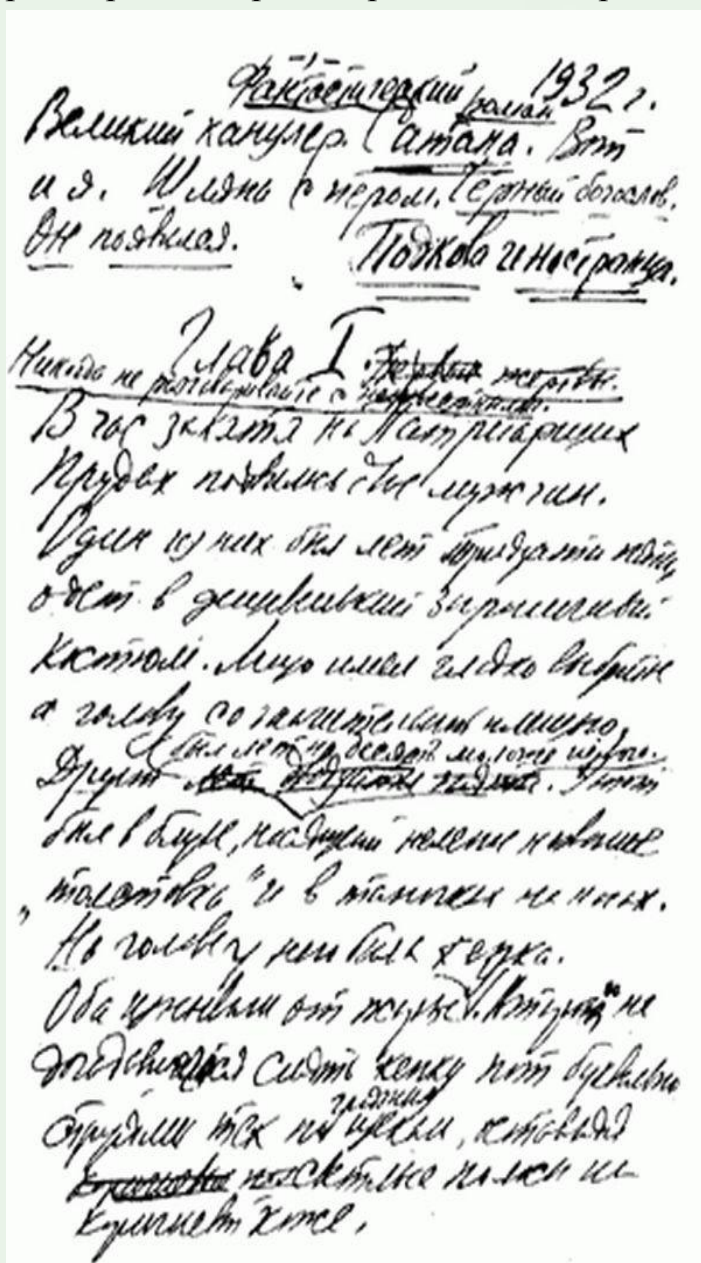 -1-
Фантастический роман 1932 г.
Великий канцлер. Сатана. Вот
и я. Шляпа с пером. Черный богослов.
Он появился. Подкова иностранца.
Глава I. Первые жертвы.
Никогда не разговаривайте с неизвестными.
В час заката на Патриарших
Прудах появились двое мужчин.
Один из них был лет тридцати пяти,
одет в дешевенький заграничный
костюм. Лицо имел гладко выбритое
а голову со значительной плешью.
был лет на десять моложе первого.
Другой лет двадцати пяти. Этот
был в блузе, носящей нелепое название
„толстовка" и в тапочках на ногах.
На голове у него была кепка.
Оба изнывали от жары. У второго, не
догадавшегося снять кепку пот буквально
грязным
струями тек по щекам, оставляя
светлые полосы на
коричневой коже.